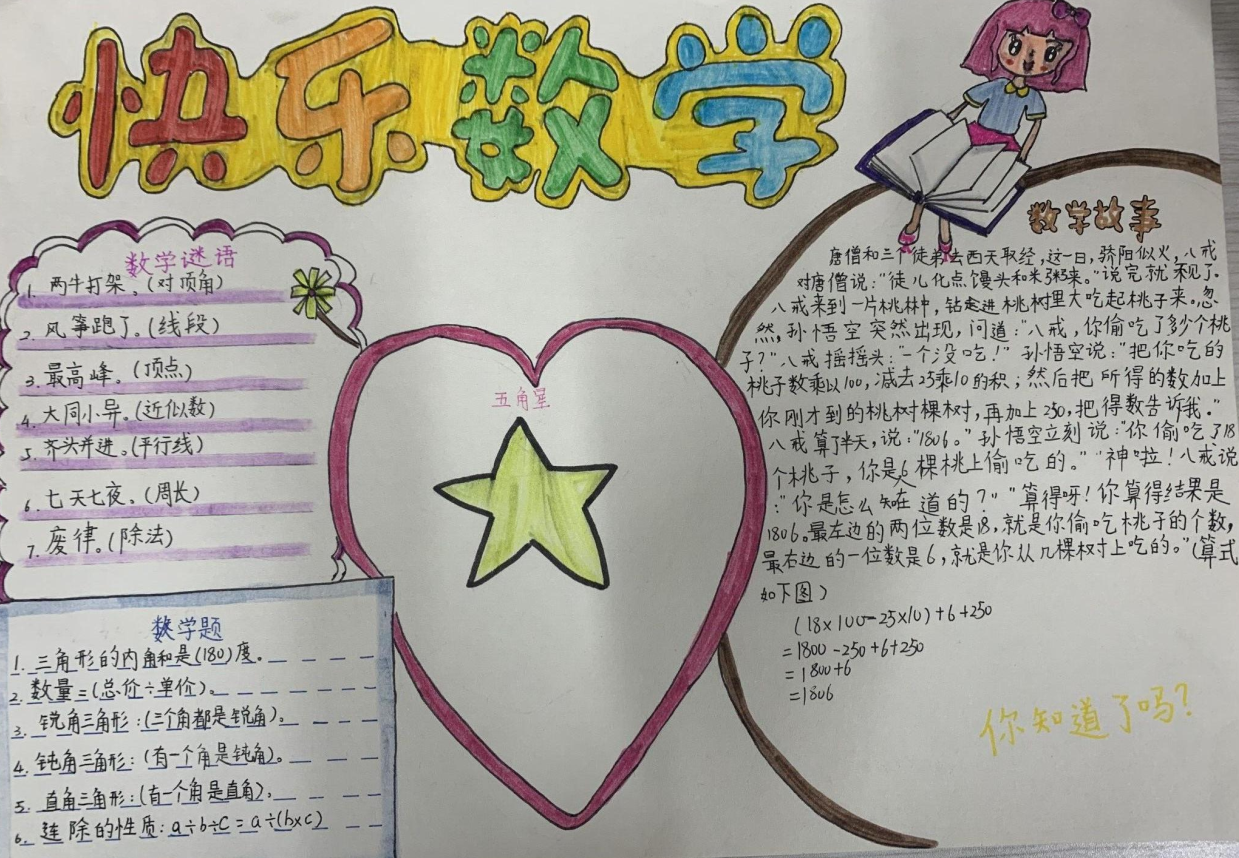 快乐数学
数学谜语
1. 两牛打架。(对顶角)
2. 风筝跑了。(线段)
3. 最高峰。(顶点)
4. 大同小异。(近似数)
5. 齐头并进。(平行线)
6. 七天七夜。(周长)
7. 废律。(除法)
数学题
1. 三角形的内角和是(180)度。
2. 数量=(总价÷单价)。
3. 锐角三角形:(三个角都是锐角)。
4. 钝角三角形:(有一个角是钝角)。
5. 直角三角形:(有一个角是直角)。
6. 连除的性质:a÷b÷c=a÷(b×c)
五角星
数学故事
唐僧和三个徒弟去西天取经,这一日,骄阳似火,八戒
对唐僧说:“徒儿化点馒头和米粥来。”说完就不见了。
八戒来到一片桃林中,钻进桃树里大吃起桃子来。忽
然,孙悟空突然出现,问道:“八戒,你偷吃了多少个桃
子?”八戒摇摇头:“一个没吃!”孙悟空说:“把你吃的
桃子数乘以100,减去25乘10的积;然后把所得的数加上
你刚才到的桃树棵树,再加上250,把得数告诉我。”
八戒算了半天,说:“1806。”孙悟空立刻说:“你偷吃了18
个桃子,你是6棵桃上偷吃的。”“神啦!八戒说
:“你是怎么知道的?”“算得呀!你算得结果是
1806。最左边的两位数是18,就是你偷吃桃子的个数,
最右边的一位数是6,就是你从几棵树上吃的。”(算式
如下图)
(18×100-25×10)+6+250
=1800-250+6+250
=1800+6
=1806
你知道了吗?